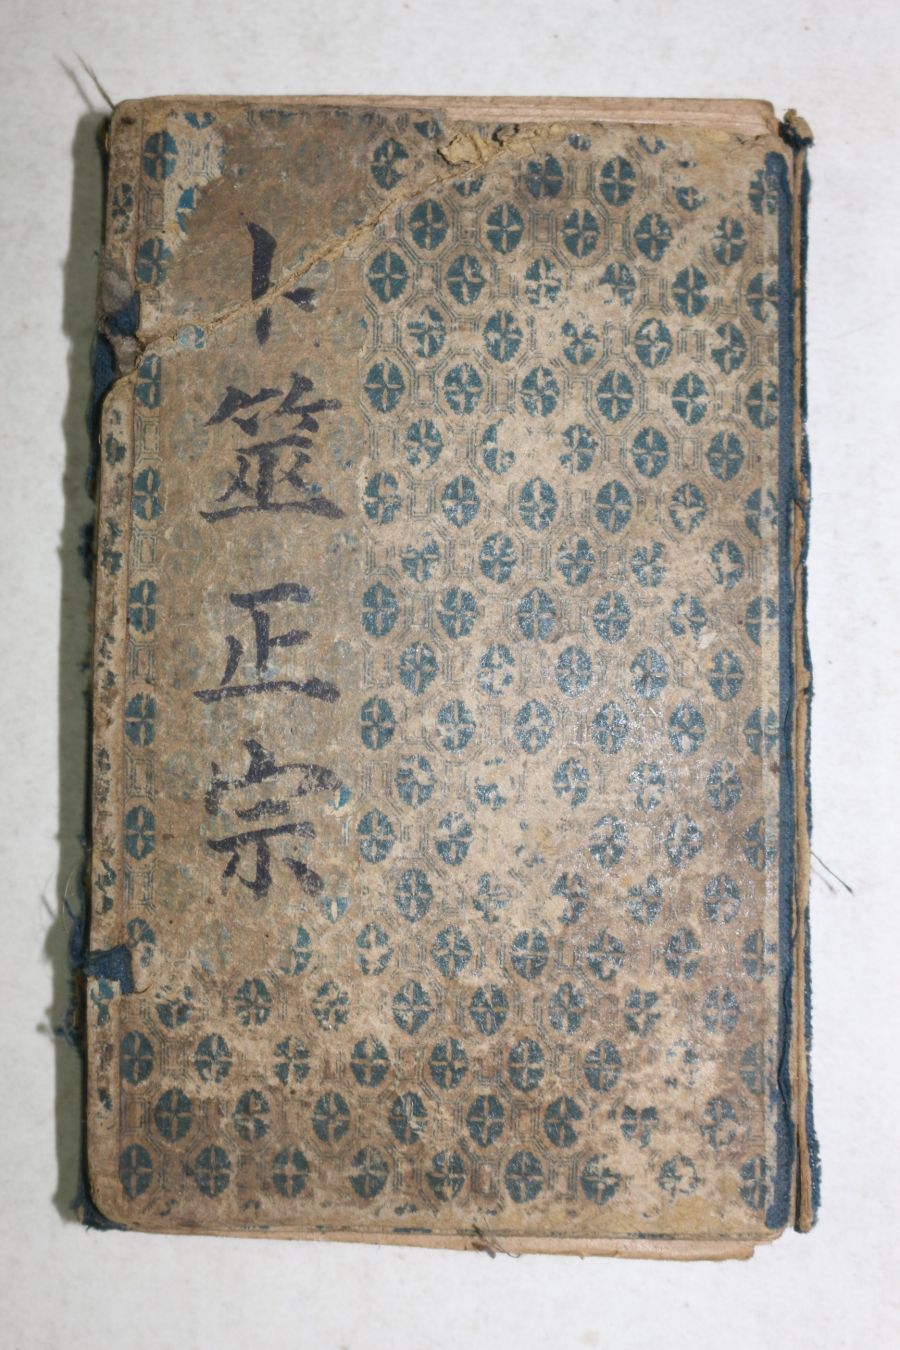 卜筮正宗